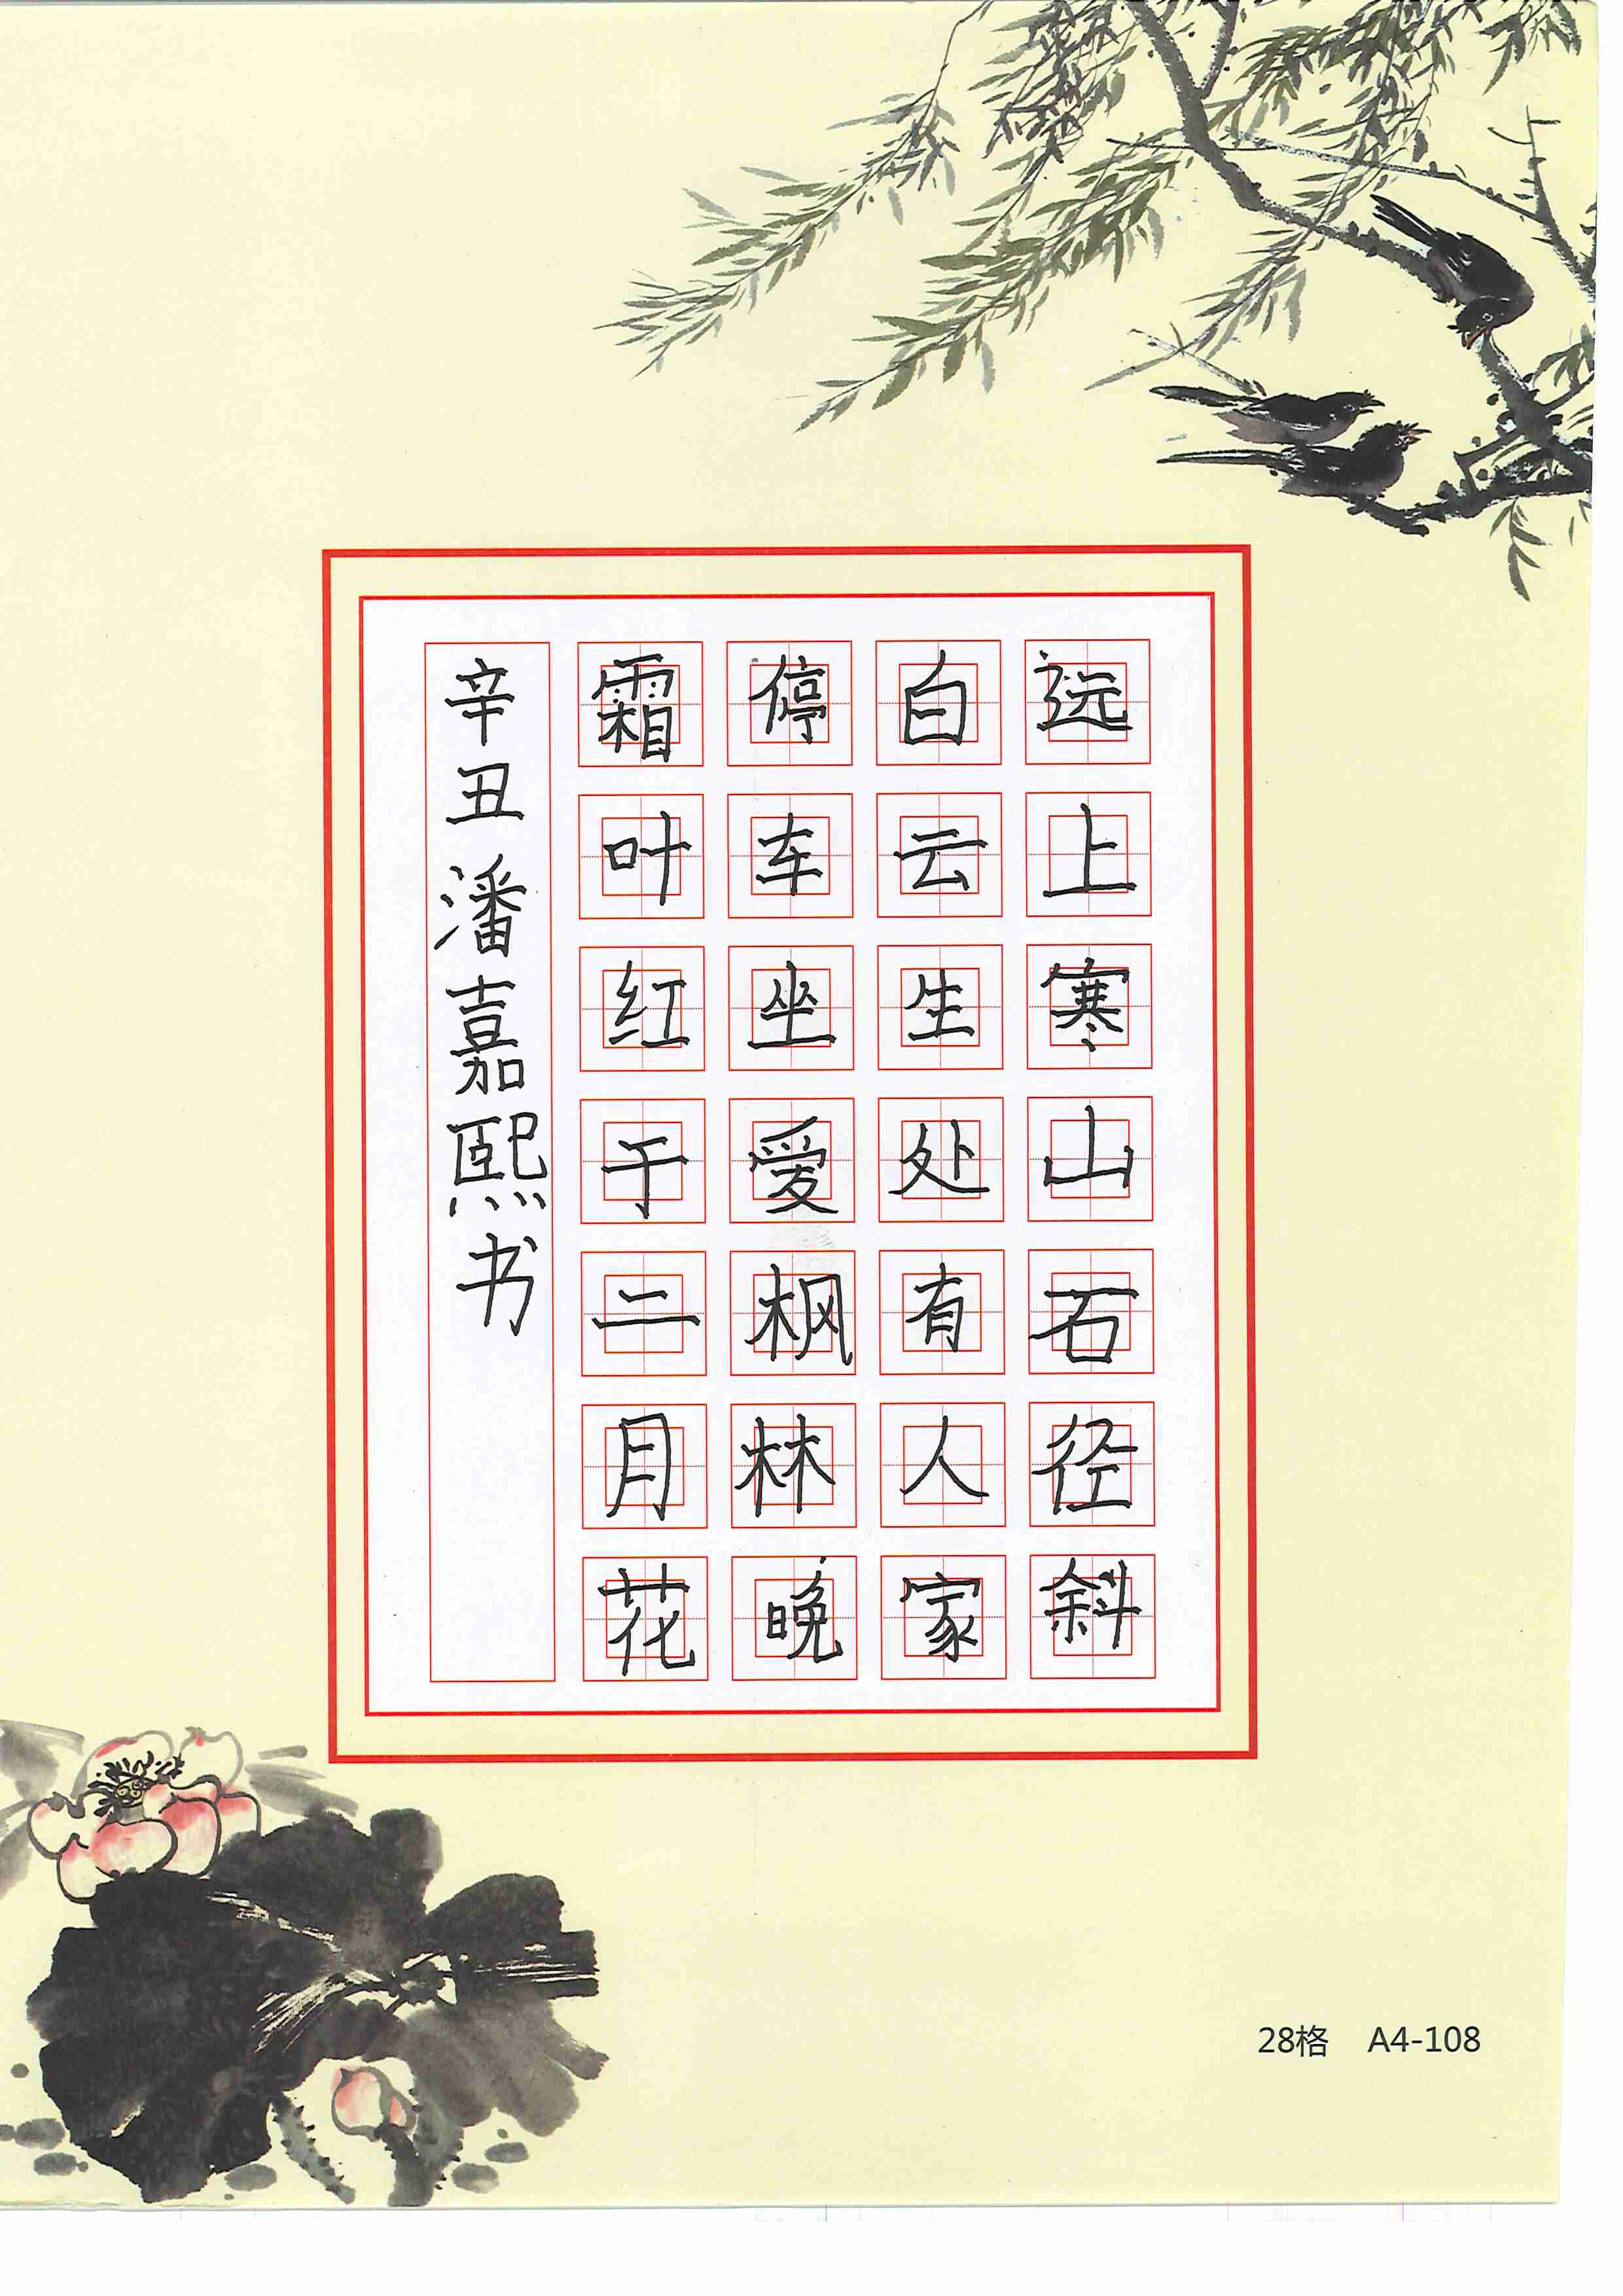 远上寒山石径斜
白云生处有人家
停车坐爱枫林晚
霜叶红于二月花
辛丑潘嘉熙书
28格 A4-108